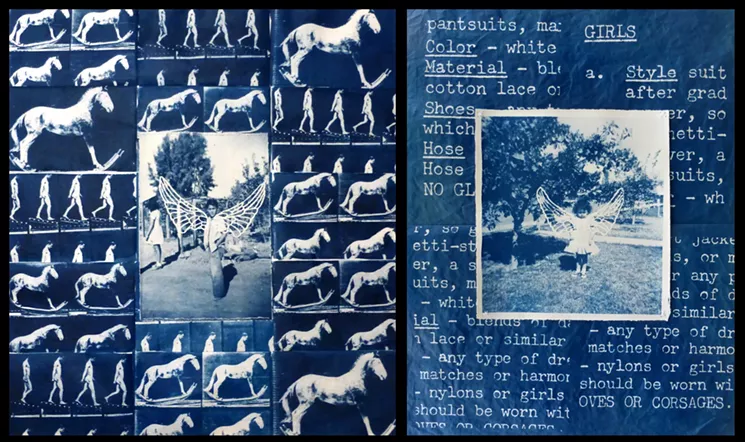 pantsuits, ma
Color - white
Material - bl
cotton lace o
Shoes - any
which
Hose
Hose
NO GL
GIRLS
a. Style suit
after grad
er, so
etti-
er, a
suits,
- wh
r, so g
etti-st
er, a s
uits, m
- whit
ial - blends of d
lace or similar
- any type of dre
matches or harmon
- nylons or girls
should be worn wit
OVES OR CORSAGES.
t jacke
s, or m
r any p
ds of d
similar
- any type of dr
matches or harmo
- nylons or girls
should be worn wi
OVES OR CORSAGES.